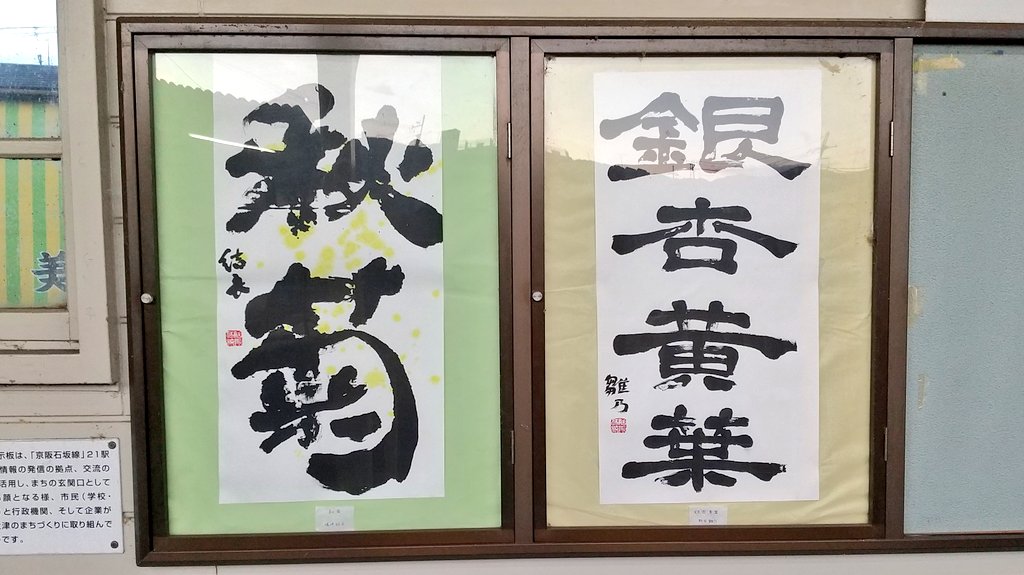 秋菊
銀杏黄葉
雛乃
示板は、「京阪石坂線」21駅
情報の発信の拠点、交流の
活用し、まちの玄関口として
顔となる様、市民(学校・
と行政機関、そして企業が
津のまちづくりに取り組んで
です。